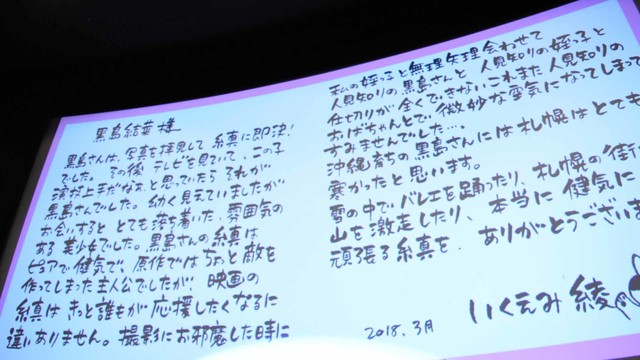 黒島結菜様
黒島さんは、写真を拝見して 糸真に即決!
でした。その後、テレビを見ていて、この子
涙が上手だなぁ、と思ってたら それが
黒島さんでした。幼く見えていましたが
お会いすると とても落ち着いた 雰囲気の
ある 美少女でした。黒島さんの糸真は
ピュアで健気で、原作では ちょっと敵を
作ってしまった主人公でしたが、映画の
糸真は きっと誰もが 応援したくなるに
違いありません。撮影にお邪魔した時に
私の姪っ子と無理矢理会わせて
人見知りの黒島さんと 人見知りの姪っ子と
仕切りが全くできないこれまた人見知りの
おばちゃんとで、微妙な空気になってしまって
すみませんでした…。
沖縄育ちの黒島さんには札幌はとても
寒かったと思います。
雪の中でバレエを踊ったり、札幌の街
山を激走したり、本当に健気に
頑張る糸真を、ありがとうござい
いくえみ綾
2018.3月